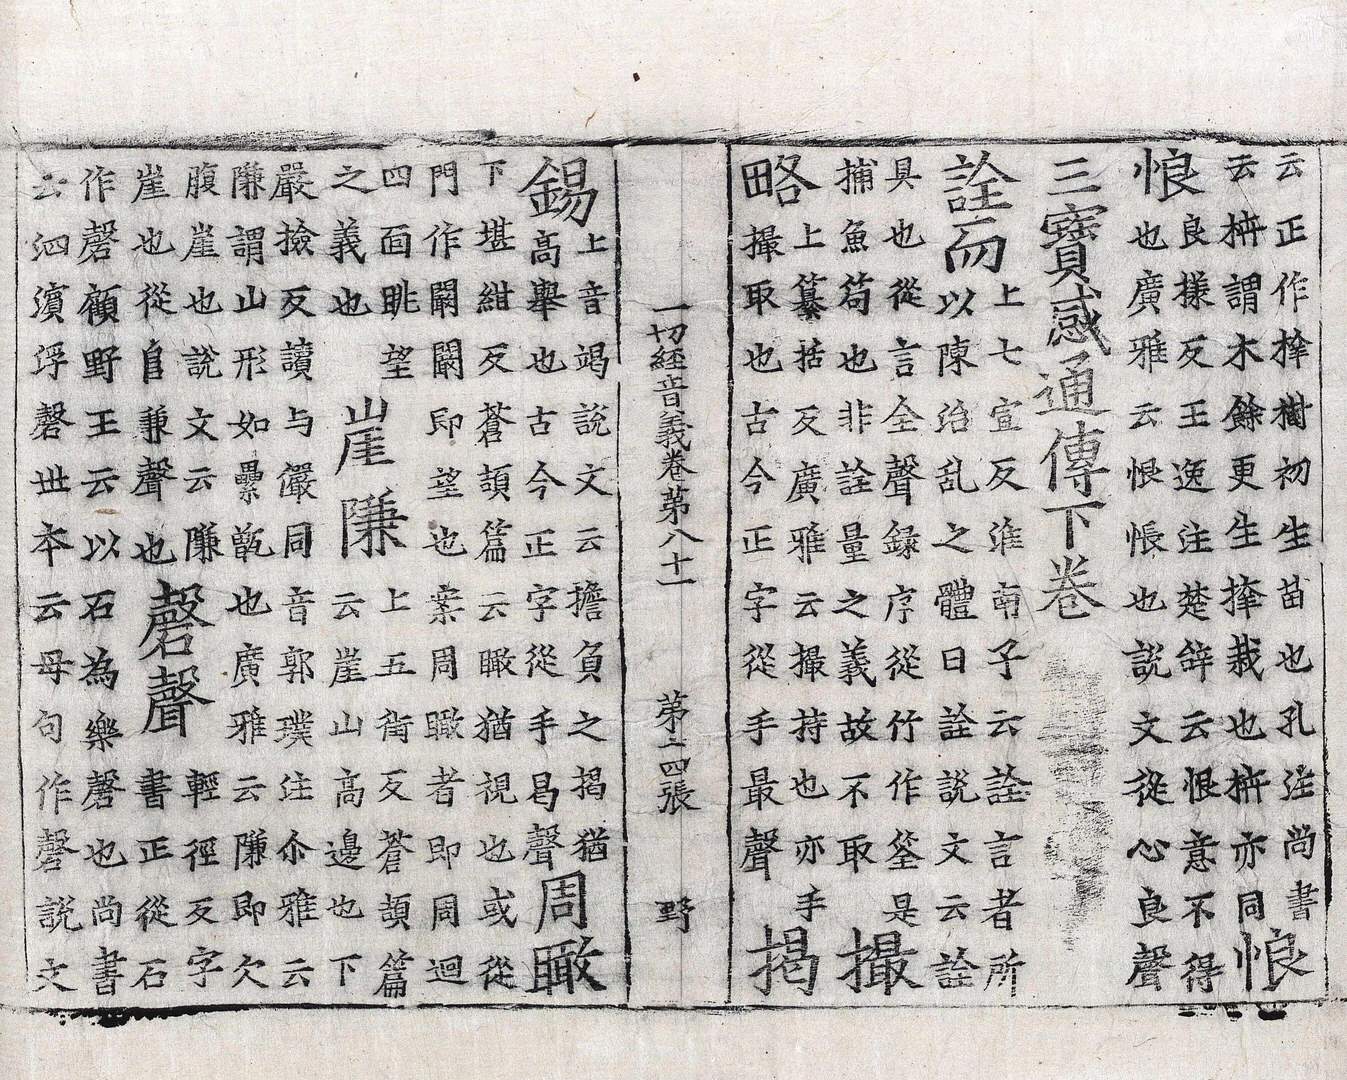 云正作㨷樹初生苗也孔注尚書
云枿謂木餘更生㨷栽也枿亦同悢
悢良樣反王逸注楚辝云悢意不得
也廣雅云悢悵也說文從心良聲
三寶感通傳下卷
詮而上七宣反淮南子云詮言者所
以陳治乱之體曰詮說文云詮
具也從言全聲録序從竹作筌是
捕魚笱也非詮量之義故不取撮
略上纂括反廣雅云撮持也亦手
撮取也古今正字從手最聲揭
一切經音義卷第八十一 第十四張 野
錫上音竭說文云擔負之揭猶
高舉也古今正字從手曷聲周瞰
下堪紺反蒼頡篇云瞰猶視也或從
門作闞闞即望也案周瞰者即周迴
四面眺望
之義也
崖隒上五街反蒼頡篇
云崖山高邊也下
嚴撿反讀与儼同音郭璞注尒雅云
隒謂山形如纍甑也廣雅云隒即欠
腹崖也說文云隒
崖也從𨸏兼聲也
磬聲輕徑反字
書正從石
作磬顧野王云以石為樂磬也尚書
云泗濱浮磬世本云母句作磬說文